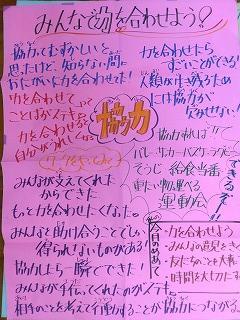 みんなで力を合わせよう!
協力てむずかしいと
思ったけど、知らない間に
おたがいに力を合わせてた!
力を合わせるって
ことばがステキ。
力を合わせると
自分がうれしくなる
力を合わせたら
すごいことができる!
人類が生き残るため
には協力が
欠かせない!
協力
協力すれば!!
バレー、サッカー、バスケ、ラグビー
そうじ 給食当番
重たい物運べる
運動会
みんなが支えてくれた
からできた
もっと力を合わせたくなった。
みんなと助け合うことでしか
得られないものがある!
協力したら一瞬でできた!
みんなが手伝ってくれたのがステキ。
相手のことを考えて行動することが協力につながる。
今月のめあて
力を合わせよう
みんなの意見をきく
友だちのこと大事
時間を大切にする